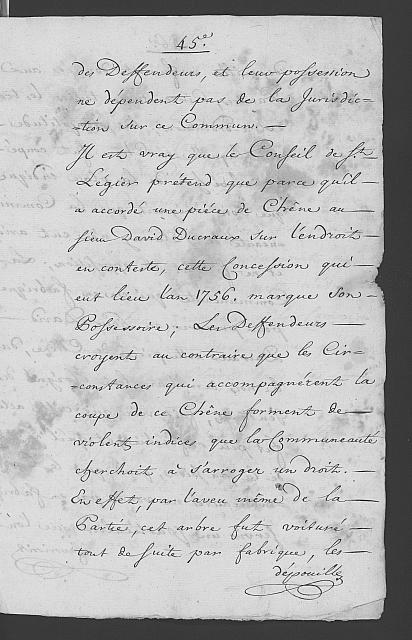 45.e
des Deffendeurs, et leur possession
ne dépendent pas de la Jurisdic-
-tion sur ce Commun. —
Il est vray que le Conseil de St.
Légier prétend que parce qu'il —
a accordé une piéce de Chêne au —
sieur David Ducraux sur l'endroit —
en conteste, cette Concession qui —
eut lieu l'an 1756. marque son —
Possessoire; Les Deffendeurs —
croyent au contraire que les Cir-
-constances qui accompagnérent la
coupe de ce Chêne forment de —
violent indices que la Communeauté
cherchoit à s'arroger un droit. —
En effet, par l'aveu même de la —
Partie, cet arbre fut voituré —
tout de suite par fabrique, les —
dépouilles